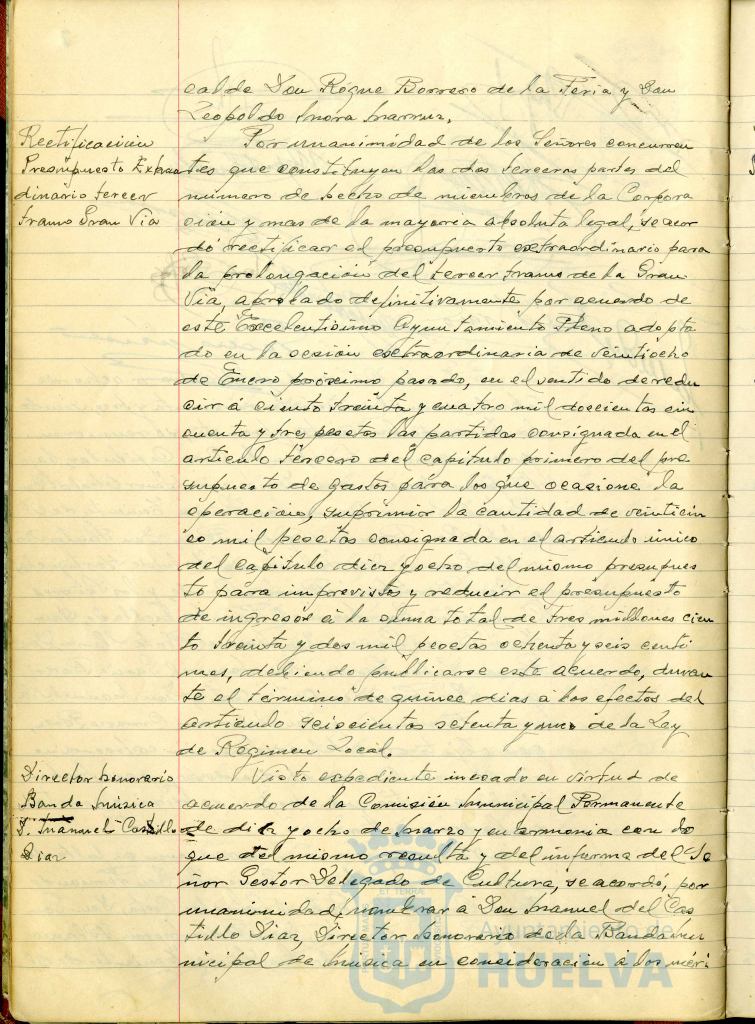 calde Don Roque Borrero de la Feria y Don
Leopoldo Mora Marmus.
Rectificación
Presupuesto Extraor
dinario tercer
tramo Gran Vía
Por unanimidad de los Señores concurren
tes que constituyen las dos terceras partes del
número de hecho de miembros de la Corpora
ción y mas de la mayoría absoluta legal, se acor
dó rectificar el presupuesto extraordinario para
la prolongación del tercer tramo de la Gran
Vía, aprobado definitivamente por acuerdo de
este Excelentísimo Ayuntamiento Pleno adopta
do en la sesión extraordinaria de veintiocho
de Enero próximo pasado, en el sentido de redu
cir á ciento treinta y cuatro mil doscientas cin
cuenta y tres pesetas las partidas consignada en el
artículo tercero del capítulo primero del pre
supuesto de gastos para los que ocasione la
operación, suprimir la cantidad de veinticin
co mil pesetas consignada en el artículo único
del capítulo diez y ocho del mismo presupues
to para imprevistos y reducir el presupuesto
de ingresos á la suma total de tres millones cien
to treinta y dos mil pesetas ochenta y seis centi
mos, debiendo publicarse este acuerdo, duran
te el término de quince días á los efectos del
artículo seiscientos setenta y uno de la Ley
de Régimen Local.
Director honorario
Banda Música
D. Manuel Castillo
Díaz
Visto expediente incoado en virtud de
acuerdo de la Comisión Municipal Permanente
de diez y ocho de Marzo y en armonía con lo
que del mismo resulta y del informe del Se
ñor Gestor Delegado de Cultura, se acordó, por
unanimidad, nombrar á Don Manuel del Cas
tillo Díaz, Director honorario de la Banda Mu
nicipal de Música en consideración a los méri
Ayuntamiento de
HUELVA